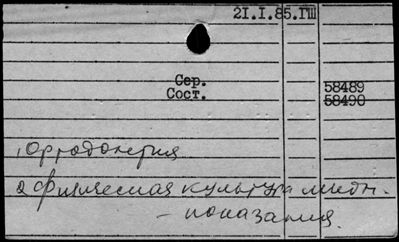 21.I.85.ГШ
Сер.
Сост.
58489
58490
1 Ортодонтия
2 Физическая культура медиц.
- показания.